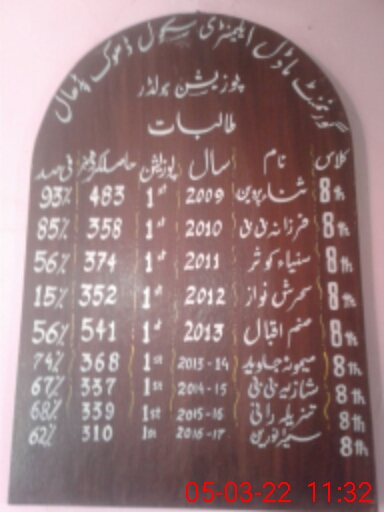 گورنمنٹ ماڈل ایلیمنٹری سکول ڈھوک پڈھال
پوزیشن ہولڈر
طالبات
کلاس نام سال پوزیشن حاصلکردہ نمبر فی صد
8th ثناء پروین 2009 1st 483 93%
8th فرزانہ بی بی 2010 1st 358 85%
8th سفیاء کوثر 2011 1st 374 56%
8th سحرش نواز 2012 1st 352 15%
8th صنم اقبال 2013 1st 541 56%
8th میمونہ جاوید 2013-14 1st 368 74%
8th شازیہ بی بی 2014-15 1st 337 67%
8th تنزیلہ رانی 2015-16 1st 339 68%
8th نورین 2016-17 1st 310 62%
05-03-22 11:32